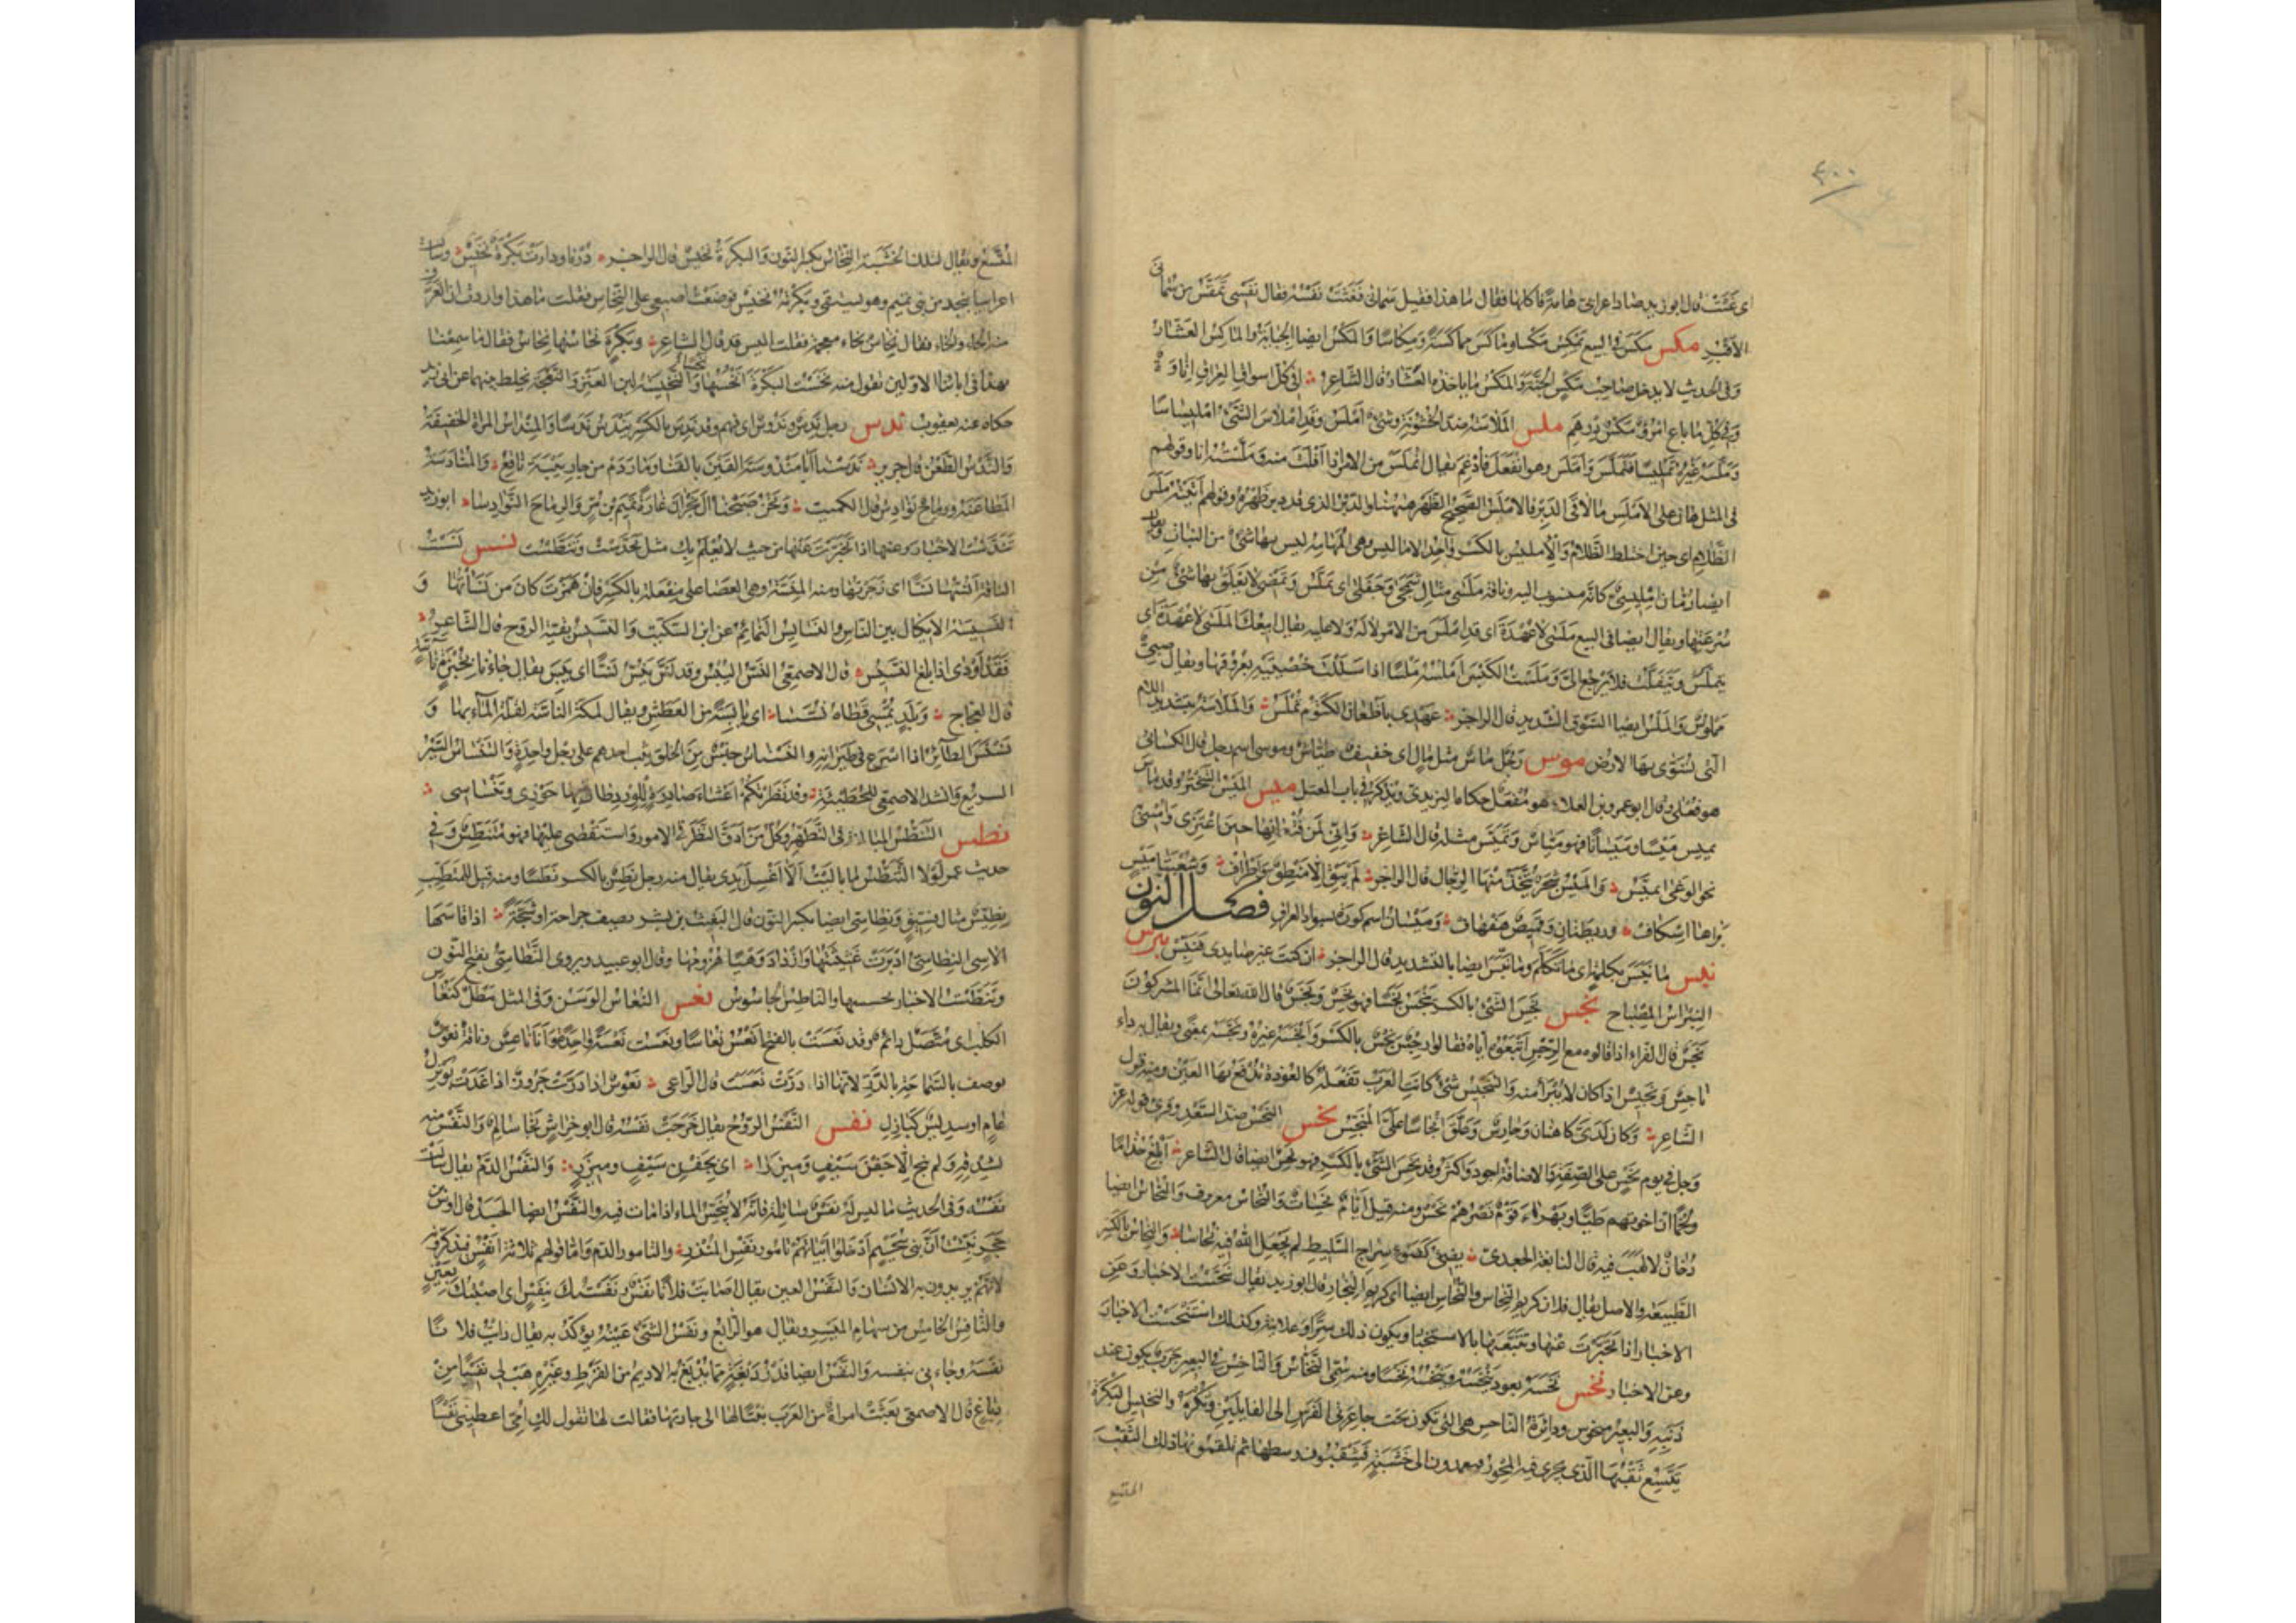 ٣٠٠
اى غثت قال ابو زيد صاد اعرابى هامة فاكلها فقال ما هذا فقيل سمانى فغثت نفسه فقال نفسى تمقس من سمانى
الاقبر مكس مكس فى البيع يمكس مكسا وماكس مماكسة ومكاسا والمكس ايضا الجباية والماكس العشار
وفى الحديث لا يدخل صاحب مكس الجنة والمكس ما ياخذه العشار قال الشاعر افى كل اسواق العراق اتاوة
وفى كل ما باع امرؤ مكس درهم ملس الملاسة ضد الخشونة وشئ املس وقد املاس الشئ امليساسا
وملسه غيره تمليسا فتملس واملس وهو انفعل فادغم يقال انملس من الامر اذا افلت منه وملسته انا وقولهم
فى المثل هان على الاملس ما لاقى الدبر فالاملس الصحيح الظهر ههنا والدبر الذى قد دبر ظهره وقولهم اتيته ملس
الظلام اى حين اختلط الظلام والامليس بالكسر واحد الاماليس وهى المهامه ليس بها شئ من النبات ويقال
ايضا رمان امليسى كانه منسوب اليه وناقة ملسى مثال شمجى وجفلى اى تملس وتمضى لا يعلق بها شئ من
سرعتها ويقال ايضا فى البيع ملسى لا عهدة اى قد املس من الامر لا له ولا عليه يقال ابيعك الملسى لا عهدة اى
يتملس ويتفلت فلا يرجع الى وملست الكبش املسه ملسا اذا سللت خصييه بعروقهما ويقال صبى
مملوس والملس ايضا السوق الشديد قال الراجز عهدى باظعان الكتوم تملس والملاسة بتشديد اللام
التى تسوى بها الارض موس رجل ماس مثل مال اى خفيف طياش وموسى اسم رجل قال الكسائى
هو فعلى وقال ابو عمرو بن العلاء هو مفعل حكاه اليزيدى ونذكره فى باب المعتل ميس الميس التبختر وقد ماس
يميس ميسا وميسانا فهو مياس وتميس مثله قال الشاعر وانى لمن قنعانها حين اعتزى وامشى
نحو الوغى اتميس والميس شجر يتخذ منها الرحال قال الراجز لم يبق الا منطق واطراف وشعبتا ميس
براها اسكاف وريطتان وقميص هفهاف وميسان اسم كورة بسواد العراق فصل النون
نبس ما نبس بكلمة اى ما تكلم وما نبس ايضا بالتشديد قال الراجز ان كنت غير صائدى فنبس نبرس
النبراس المصباح نجس نجس الشئ بالكسر ينجس نجسا فهو نجس ونجس قال الله تعالى انما المشركون
نجس قال الفراء اذا قالوه مع الرجس اتبعوه اياه فقالوا رجس نجس بالكسر وانجسه غيره ونجسه بمعنى ويقال به داء
ناجس ونجيس اذا كان لا يبرأ منه والتنجيس شئ كانت العرب تفعله كالعوذة تدفع بها العين ومنه قول
الشاعر وكان لدى كاهنان وحارث وعلق انجاسا على المنجس نحس النحس ضد السعد وقرئ قوله عز
وجل فى يوم نحس على الصفة والاضافة اجود واكثر وقد نحس الشئ بالكسر فهو نحس ايضا قال الشاعر ابلغ جذاما
ولخما ان اخوتهم طيا وبهراء قوم نصرهم نحس ومنه قيل ايام نحسات والنحاس معروف والنحاس ايضا
دخان لا لهب فيه قال النابغة الجعدى يضئ كضوء سراج السليط لم يجعل الله فيه نحاسا والنحاس بالكسر
الطبيعة والاصل يقال فلان كريم النحاس والنحاس ايضا اى كريم النجار قال ابو زيد يقال تنحست الاخبار وعن
الاخبار اذا تخبرت عنها وتتبعتها بالاستخبار ويكون ذلك سرا وعلانية وكذلك استنحست الاخبار
وعن الاخبار نخس نخسه بعود ينخسه وينخسه نخسا ومنه سمى النخاس والناخس فى البعير جرب يكون عند
ذنبه والبعير منخوس ودائرة الناخس هى التى تكون تحت جاعرتى الفرس الى الفايلين وتكره والنخيس البكرة
يتسع ثقبها الذى يجرى فيه المحور فيعمدون الى خشبة فيثقبون وسطها ثم يلقمونها ذلك الثقب
المتسع
المتسع ويقال لتلك الخشبة النخاس بكسر النون والبكرة نخيس قال الراجز درنا ودارت بكرة نخيس وسالت
اعرابيا بنجد من بنى تميم وهو يستقى وبكرته نخيس فوضعت اصبعى على النخاس فقلت ما هذا واردت ان اتعرف
منه الحاء والخاء فقال نخاس بخاء معجمة فقلت اليس قد قال الشاعر وبكرة نحاسها نحاس فقال ما سمعنا
بهذا فى ابائنا الاولين تقول منه نخست البكرة انخسها والنخيسة لبن العنز والنعجة يخلط بينهما عن ابى زيد
حكاه عنه يعقوب ندس رجل ندس وندس اى فهم وقد ندس بالكسر يندس ندسا والمنداس المراة الخفيفة
والندس الطعن قال جرير ندسنا ابا مندوسة القين بالقنا ومار دم من جار بيبة ناقع والمنادسة
المطاعنة ورماح نوادس قال الكميت ونحن صبحنا آل نجران غارة تميم بن مر والرماح النوادسا ابو زيد
تندست الاخبار وعنها اذا تخبرت عنها من حيث لا يعلم بك مثل تحدست وتنطست نسس نسست
الناقة انسها نسا اى زجرتها ومنه المنسة وهى العصا على مفعلة بالكسر فان همزت كان من نسأتها و
النسيسة الايكال بين الناس والنسايس النمائم عن ابن السكيت والنسيس بقية الروح قال الشاعر
فقد اودى اذا بلغ النسيس قال الاصمعى النس اليبس وقد نس ينس نسا اى يبس يقال جاءنا بخبزة ناسة
قال العجاج وبلد يمسى قطاه نسسا اى يابسة من العطش ويقال لمكة الناسة لقلة الماء بها و
نسنس الطائر اذا اسرع فى طيرانه والنسناس جنس من الخلق يثب احدهم على رجل واحدة والتنساس السير
السريع وانشد الاصمعى للحطيئة وقد نظرتكم اعشاء صادرة للورد طال بها حوزى وتنساسى
نطس التنطس المبالغة فى التطهر وكل من ادق النظر فى الامور واستقصى عليها فهو متنطس وفى
حديث عمر لولا التنطس لما باليت الا اغسل يدى يقال منه رجل نطس بالكسر نطسا ومنه قيل للمتطبب
نطيس مثال فسيق ونطاسى ايضا بكسر النون قال البعيث بن بشر يصف جراحة او شجة اذا قاسها
الاسى النطاسى ادبرت غثيثتها وازداد وهيا هزومها وقال ابو عبيد ويروى النطاسى بفتح النون
وتنطست الاخبار تحسستها والناطس الجاسوس نعس النعاس الوسن وفى المثل مطل كنعاس
الكلب اى متصل دائم وقد نعست بالفتح انعس نعاسا ونعست نعسة واحدة وانا ناعس وناقة نعوس
توصف بالسماحة بالدر لانها اذا درت نعست قال الراعى نعوس اذا درت جروز اذا غدت بويزل
عام او سديس كبازل نفس النفس الروح يقال خرجت نفسه قال ابو خراش نجا سالم والنفس منه
بشدقه ولم ينج الا جفن سيف وميزرا اى بجفن سيف وميزر والنفس الدم يقال سالت
نفسه وفى الحديث ما ليس له نفس سائلة فانه لا ينجس الماء اذا مات فيه والنفس ايضا الجسد قال اوس بن
حجر نبئت ان بنى سحيم ادخلوا ابياتهم تامور نفس المنذر والتامور الدم واما قولهم ثلاثة انفس فيذكرونه
لانهم يريدون به الانسان والنفس العين يقال اصابت فلانا نفس ونفستك بنفس اى اصبتك بعين
والنافس الخامس من سهام الميسر ويقال هو الرابع ونفس الشئ عينه يؤكد به يقال رايت فلانا
نفسه وجاءنى بنفسه والنفس ايضا قدر دبغة مما يدبغ به الاديم من القرظ وغيره هب لى نفسا من
دباغ قال الاصمعى بعثت امراة من العرب بنتا لها الى جارتها فقالت لها تقول لك امى اعطينى نفسا